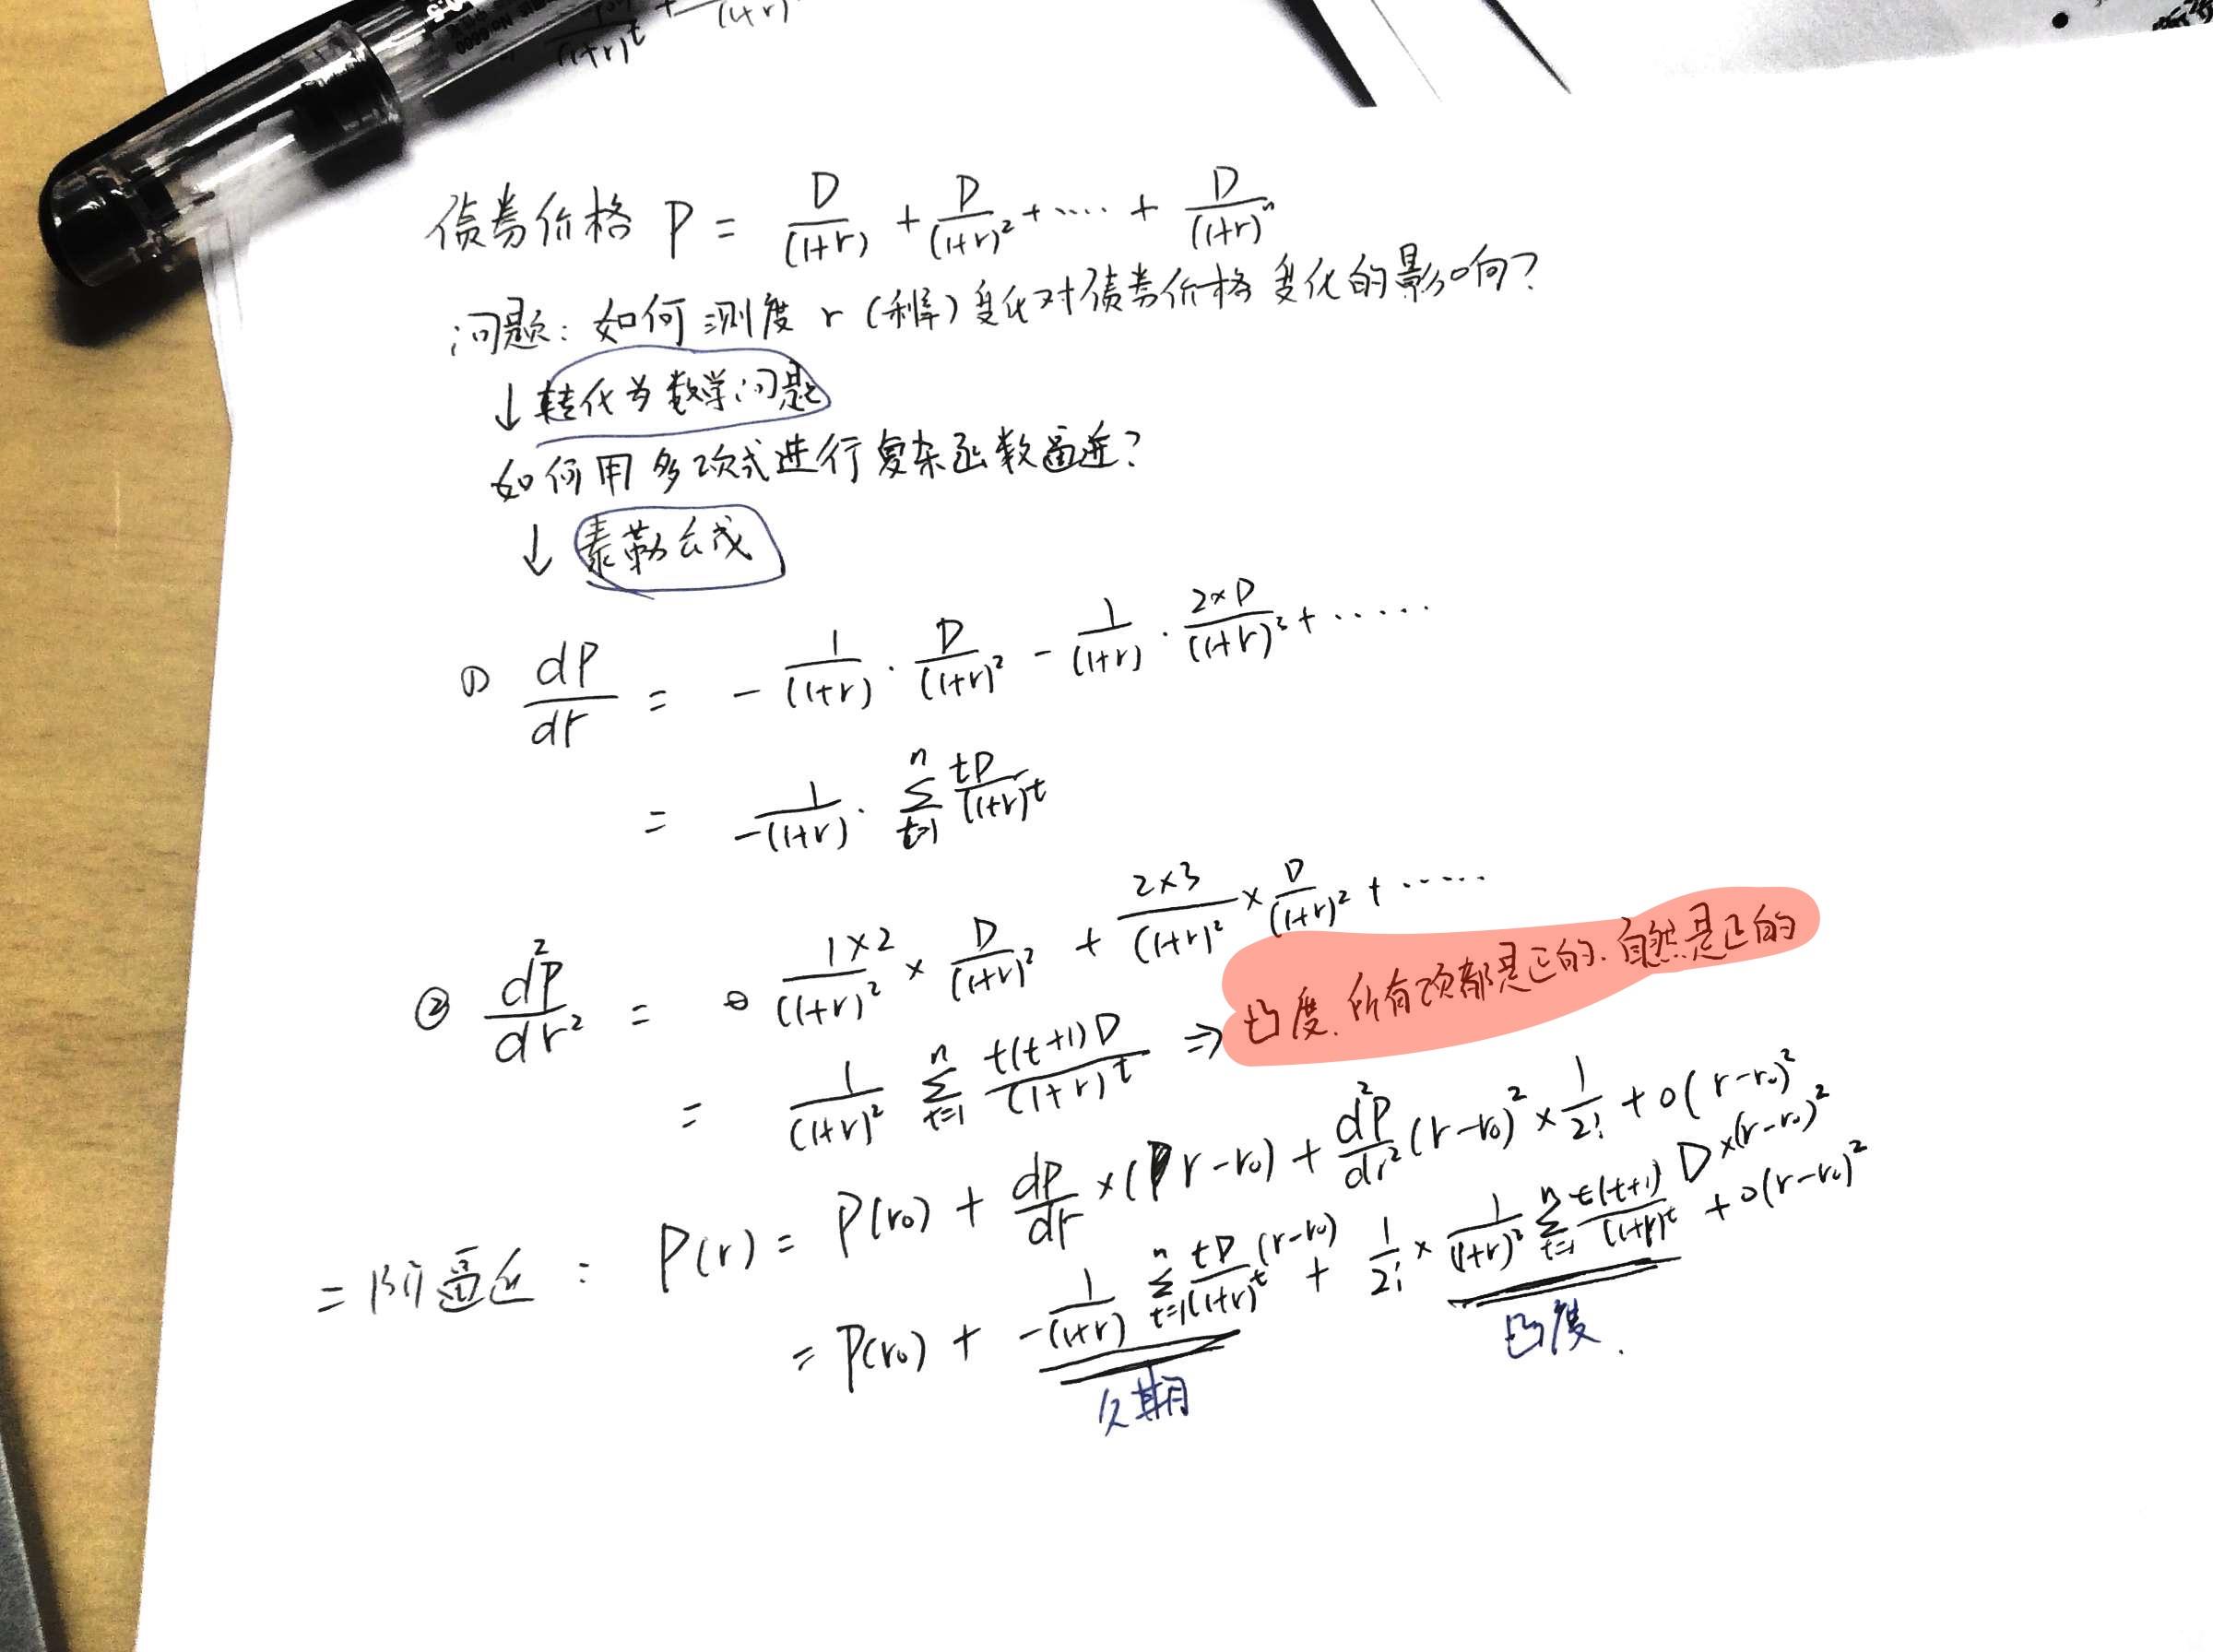 (1+r)^t + (1+r)
债券价格 P = D/(1+r) + D/(1+r)^2 + ····· + D/(1+r)^n
问题: 如何测度 r (利率) 变化对债券价格变化的影响?
↓ 转化为数学问题
如何用多项式进行复杂函数逼近?
↓ 泰勒公式
① dP/dr = - 1/(1+r) · D/(1+r)^2 - 1/(1+r) · 2×D/(1+r)^3 + ······
= 1/-(1+r) · Σ_{t=1}^{n} tD/(1+r)^t
② d^2P/dr^2 = 1×2/(1+r)^2 × D/(1+r)^2 + 2×3/(1+r)^2 × D/(1+r)^2 + ······
= 1/(1+r)^2 Σ_{t=1}^{n} t(t+1)D/(1+r)^t ⇒ 凸度. 所有项都是正的. 自然是正的
二阶逼近: P(r) = P(r0) + dP/dr ×(r-r0) + d^2P/dr^2 (r-r0)^2 × 1/2! + o(r-r0)^2
= P(r0) + 1/-(1+r) Σ_{t=1}^{n} tD/(1+r)^t (r-r0) + 1/2! × 1/(1+r)^2 Σ_{t=1}^{n} t(t+1)/(1+r)^t D×(r-r0)^2 + o(r-r0)^2
久期
凸度.